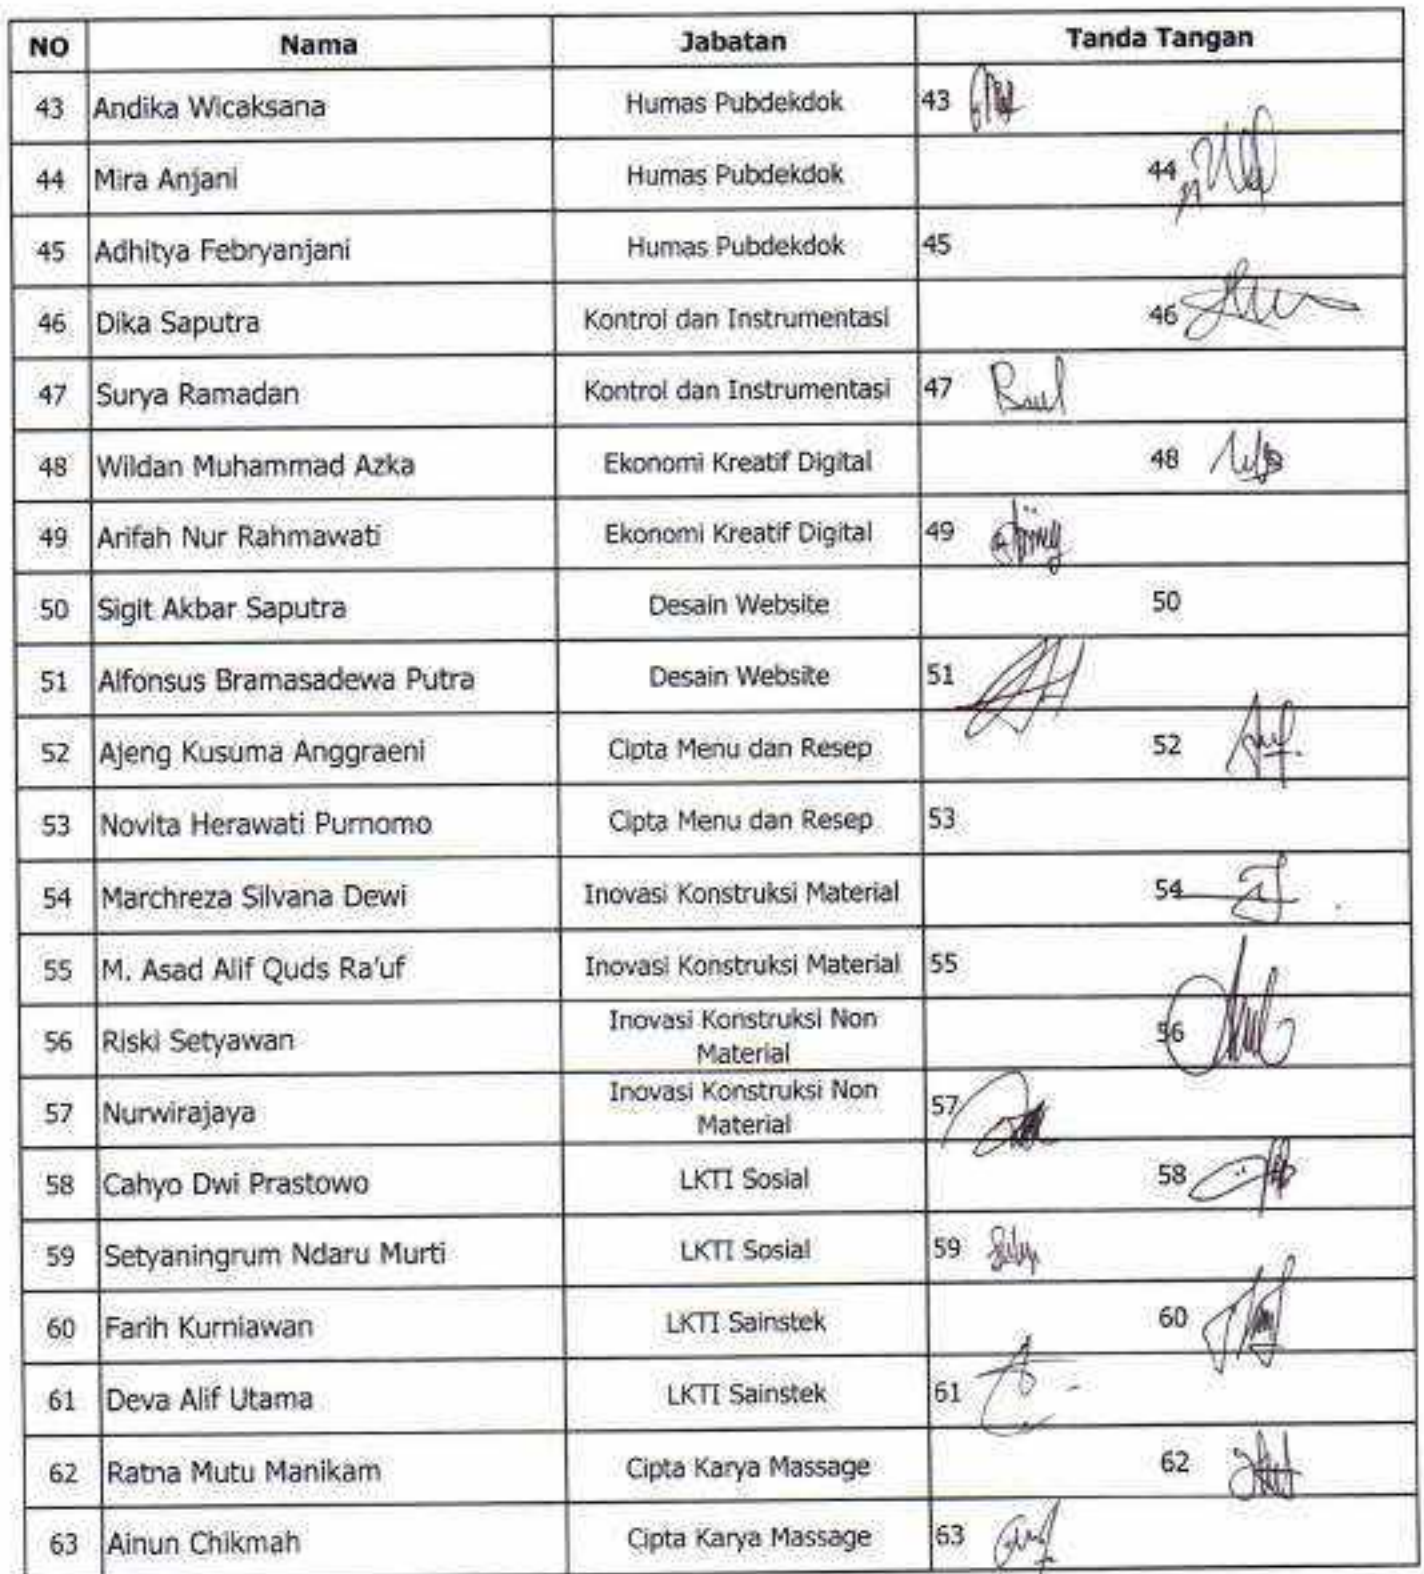 NO Nama Jabatan Tanda Tangan
43 Andika Wicaksana Humas Pubdekdok 43
44 Mira Anjani Humas Pubdekdok 44
45 Adhitya Febryanjani Humas Pubdekdok 45
46 Dika Saputra Kontrol dan Instrumentasi 46
47 Surya Ramadan Kontrol dan Instrumentasi 47
48 Wildan Muhammad Azka Ekonomi Kreatif Digital 48
49 Arifah Nur Rahmawati Ekonomi Kreatif Digital 49
50 Sigit Akbar Saputra Desain Website 50
51 Alfonsus Bramasadewa Putra Desain Website 51
52 Ajeng Kusuma Anggraeni Cipta Menu dan Resep 52
53 Novita Herawati Purnomo Cipta Menu dan Resep 53
54 Marchreza Silvana Dewi Inovasi Konstruksi Material 54
55 M. Asad Alif Quds Ra'uf Inovasi Konstruksi Material 55
56 Riski Setyawan Inovasi Konstruksi Non Material 56
57 Nurwirajaya Inovasi Konstruksi Non Material 57
58 Cahyo Dwi Prastowo LKTI Sosial 58
59 Setyaningrum Ndaru Murti LKTI Sosial 59
60 Farih Kurniawan LKTI Sainstek 60
61 Deva Alif Utama LKTI Sainstek 61
62 Ratna Mutu Manikam Cipta Karya Massage 62
63 Ainun Chikmah Cipta Karya Massage 63